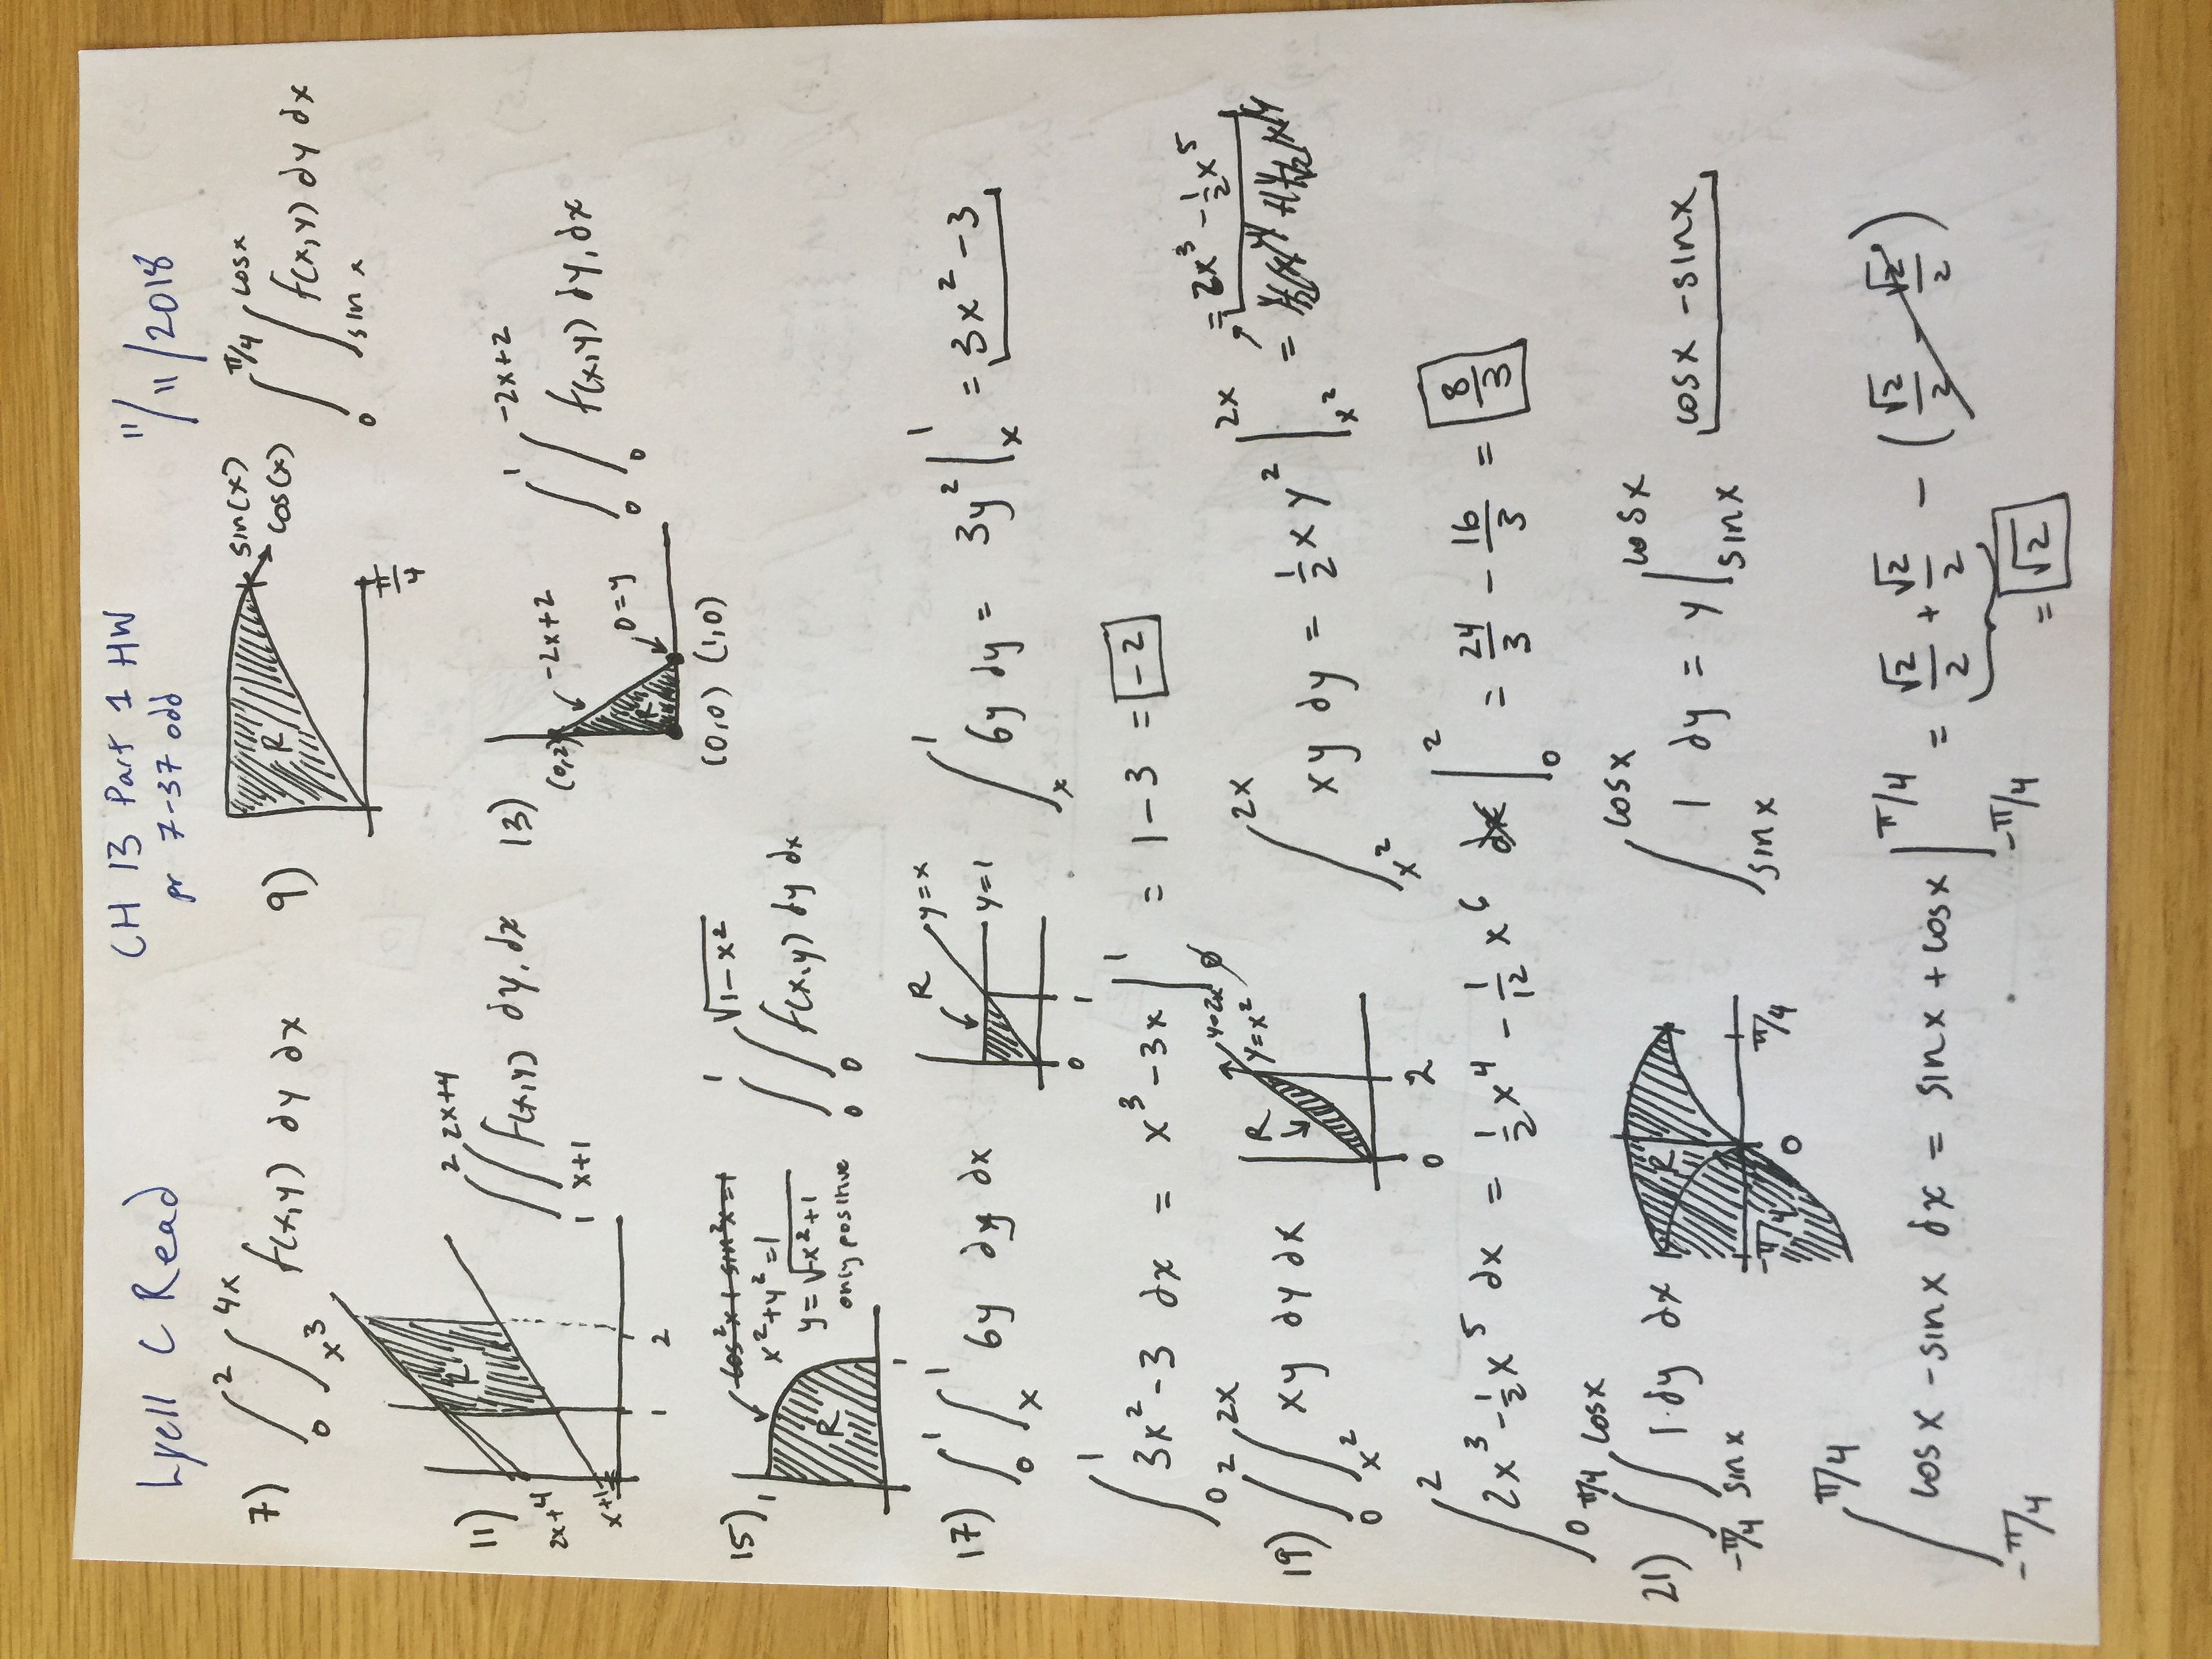 Lyell C Read
CH 13 Part 1 HW
pr 7-37 odd
11/11/2018
7) ∫₀² ∫_{x³}^{4x} f(x,y) dy dx
9) R sin(x) cos(x) π/4
∫₀^{π/4} ∫_{sin x}^{cosx} f(x,y) dy dx
11) 2x+4 x+1 R 1 2
∫₁² ∫_{x+1}^{2x+4} f(x,y) dy, dx
13) (0,2) -2x+2 0=y R (0,0) (1,0)
∫₀¹ ∫₀^{-2x+2} f(x,y) dy, dx
15) 1 R 1 cos²x+sin²x=1
x²+y²=1
y=√(-x²+1)
only positive
∫₀¹ ∫₀^{√(1-x²)} f(x,y) dy dx
17) ∫₀¹ ∫ₓ¹ 6y dy dx
R y=x y=1 0 1
∫ₓ¹ 6y dy = 3y² |ₓ¹ = 3x²-3
∫₀¹ 3x²-3 dx = x³-3x |¹ = 1-3 = -2
19) ∫₀² ∫_{x²}^{2x} xy dy dx
R y=2x y=x² 0 2
∫_{x²}^{2x} xy dy = ½xy² |_{x²}^{2x} = 2x³-½x⁵
=
∫₀² 2x³-½x⁵ dx = ½x⁴ - 1/12 x⁶ dx |₀² = 24/3 - 16/3 = 8/3
21) ∫_{-π/4}^{π/4} ∫_{sin x}^{cosx} 1·dy dx
R -π/4 0 π/4
∫_{sin x}^{cosx} 1 dy = y |_{sin x}^{cosx} cosx-sinx
∫_{-π/4}^{π/4} cosx-sinx dx = sinx+cosx |_{-π/4}^{π/4} = √2/2 + √2/2 - (√2/2 - √2/2)
= √2